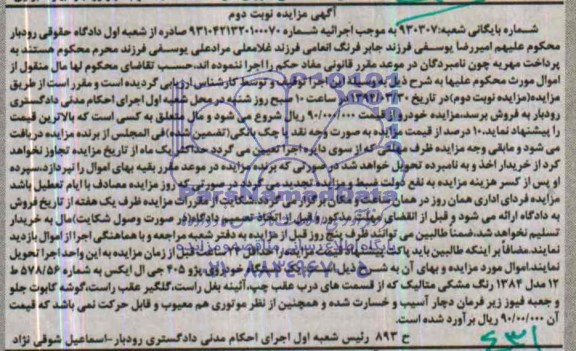 آگهی مزایده نوبت دوم
شماره بایگانی شعبه:۹۳۰۳۰۷ به موجب اجرائیه شماره ۹۳۱۰۴۲۱۳۲۰۱۰۰۰۷۰ صادره از شعبه اول دادگاه حقوقی رودبار
محکوم علیهم امیررضا یوسفی فرزند جابر فرنگ انعامی فرزند غلامعلی مرادعلی یوسفی فرزند محرم محکوم هستند به
پرداخت مهریه چون نامبردگان در موعد مقرر قانونی مفاد حکم را اجرا ننموده اند.حسب تقاضای محکوم لها مال منقول از
اموال مورث محکوم علیها به شرح ذیل به مرحله اجرا توقیف و توسط کارشناس ارزیابی گردیده است و مقرر است از طریق
مزایده(مزایده نوبت دوم)در تاریخ در ساعت ۱۰ صبح روز شنبه در محل شعبه اول اجرای احکام مدنی دادگستری
رودبار به فروش برسد.مزایده خودرو از قیمت ۹۰/۰۰۰/۰۰۰ ریال شروع می شود و مال متعلق به کسی است که بالاترین قیمت
را پیشنهاد نماید.۱۰ درصد از قیمت مزایده به صورت وجه نقد یا چک بانکی(تضمین شده)فی المجلس از برنده مزایده دریافت
می شود و مابقی وجه مزایده ظرف مهلتی که از سوی دایره اجرا تعیین می گردد حداکثر یک ماه از تاریخ مزایده تجاوز نخواهد
کرد از خریدار اخذ و به نامبرده تحویل خواهد شد در صورتی که برنده مزایده در موعد مقرر بقیه بهای اموال را نپردازد.سپرده
او پس از کسر هزینه مزایده به نفع دولت ضبط و مزایده تجدید می گردد در صورتی که روز مزایده مصادف با ایام تعطیل باشد
مزایده فردای اداری همان روز در همان ساعت و مکان برگزار می گردد.شکایت از مقررات مزایده ظرف یک هفته از تاریخ فروش
به دادگاه ارائه می شود و قبل از انقضای مهلت مذکور و قبل از اتخاذ تصمیم دادگاه(در صورت وصول شکایت)مال به خریدار
تسلیم نخواهد شد.ضمنا طالبین می توانند ظرف پنج روز قبل از مزایده به این شعبه مراجعه و با هماهنگی اجرا از اموال بازدید
نمایند.مضافا بر اینکه طالبین باید پاکت پیشنهاد قیمت مزایده را حداقل ۲۴ ساعت قبل از زمان مزایده به این واحد اجرا تحویل
نمایند.اموال مورد مزایده و بهای آن به شرح ذیل خودرو پژو ۴۰۵ جی ال ایکس به شماره ۵۷۸/۵۶ ط
۱۲ مدل ۱۳۸۴ رنگ مشکی متالیک که از قسمت های درب عقب چپ.آئینه بغل راست،گلگیر عقب راست،گوشه کاپوت جلو
و جعبه فیوز زیر فرمان دچار آسیب و خسارت شده و همچنین از نظر موتوری هم معیوب و قابل حرکت نمی باشد که قیمت
آن ۹۰/۰۰۰/۰۰۰ ریال برآورد شده است.
ح ۸۹۳ رئیس شعبه اول اجرای احکام مدنی دادگستری رودبار-اسماعیل شوقی نژاد
۶۳۱